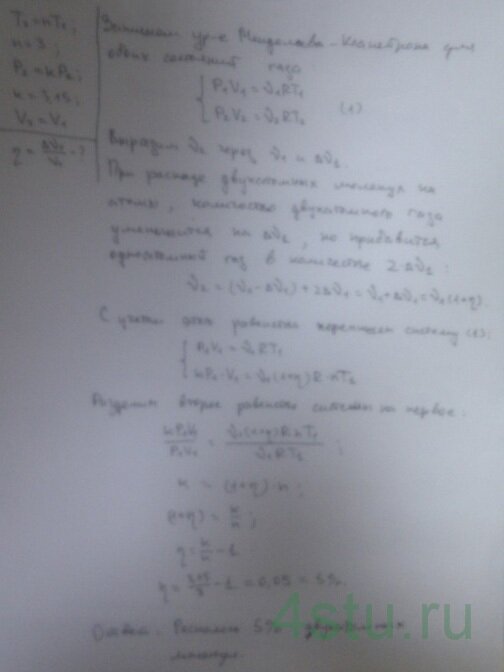 T₂ = nT₁;
n = 3;
P₂ = kP₁;
k = 3,15;
V₂ = V₁
η = Δν₁/ν₁ - ?
Запишем ур-е Менделеева-Клапейрона для
обоих состояний газа
P₁V₁ = ν₁RT₁
P₂V₂ = ν₂RT₂ (1)
Выразим ν₂ через ν₁ и Δν₁.
При распаде двухатомных молекул на
атомы, количество двухатомного газа
уменьшится на Δν₁, но прибавится
одноатомный газ в количестве 2Δν₁:
ν₂ = (ν₁-Δν₁)+2Δν₁ = ν₁+Δν₁ = ν₁(1+η).
С учетом этого равенства перепишем систему (1):
P₁V₁ = ν₁RT₁
kP₁·V₁ = ν₁(1+η)R·nT₁
Разделим второе равенство системы на первое:
kP₁V₁/P₁V₁ = ν₁(1+η)R·nT₁/ν₁RT₁;
k = (1+η)·n;
(1+η) = k/n;
η = k/n - 1
η = 3,15/3 - 1 = 0,05 = 5%.
Ответ: Распалось 5% двухатомных
молекул.
4stu.ru